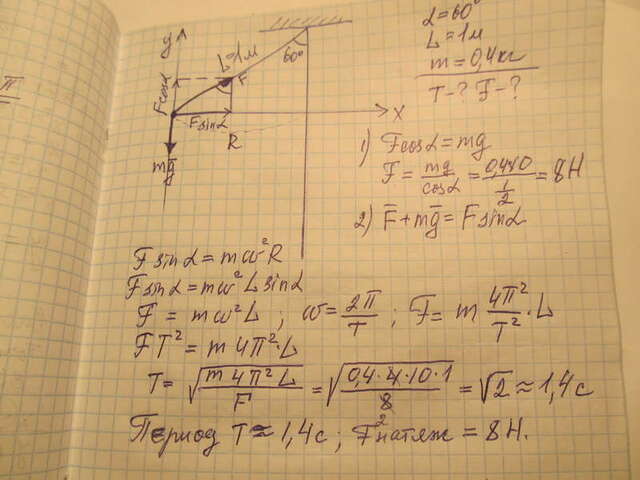 α=60°
L=1м
m=0,4кг
T-? F-?
y
L=1м
60°
F
Fcosα
Fsinα
X
R
mg̅
1) Fcosα=mg
F = mg/cosα = 0,4·10/(1/2) = 8Н
2) F̅+mg̅=Fsinα
Fsinα=mω²R
Fsinα=mω²Lsinα
F = mω²L ; ω=2π/T ; F= m 4π²/T² ·L
FT²=m4π²·L
T= √(m4π²L/F) = √(0,4·4·10·1/8) = √2 ≈ 1,4с
2
Период T≈1,4с ; Fнатяж = 8Н.